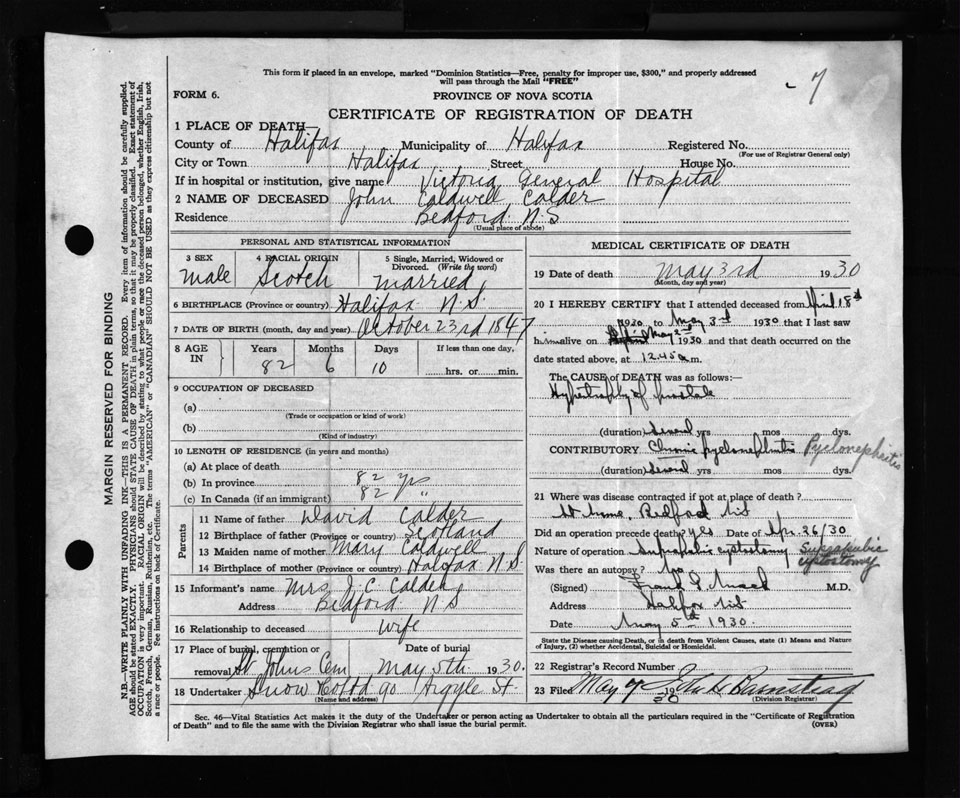 This form if placed in an envelope, marked "Dominion Statistics—Free, penalty for improper use, $300," and properly addressed
will pass through the Mail "FREE"
7
FORM 6.
PROVINCE OF NOVA SCOTIA
CERTIFICATE OF REGISTRATION OF DEATH
1 PLACE OF DEATH—
County of Halifax Municipality of Halifax Registered No.
(For use of Registrar General only)
City or Town Halifax Street House No.
If in hospital or institution, give name Victoria General Hospital
2 NAME OF DECEASED John Caldwell Calder
Residence Bedford N.S
(Usual place of abode)
PERSONAL AND STATISTICAL INFORMATION
3 SEX 4 RACIAL ORIGIN 5 Single, Married, Widowed or
Divorced. (Write the word)
male Scotch married
6 BIRTHPLACE (Province or country) Halifax N.S.
7 DATE OF BIRTH (month, day and year) October 23rd 1847
8 AGE IN Years Months Days If less than one day,
82 6 10 hrs. or min.
9 OCCUPATION OF DECEASED
(a)
(Trade or occupation or kind of work)
(b)
(Kind of industry)
10 LENGTH OF RESIDENCE (in years and months)
(a) At place of death
(b) In province 82 yrs
(c) In Canada (if an immigrant) 82 "
Parents
11 Name of father David Calder
12 Birthplace of father (Province or country) Scotland
13 Maiden name of mother Mary Caldwell
14 Birthplace of mother (Province or country) Halifax N.S.
15 Informant's name Mrs J.C Calder
Address Bedford N S
16 Relationship to deceased wife
17 Place of burial, cremation or Date of burial
removal St Johns Cem May 5th 1930.
18 Undertaker Snow & Co Ltd 90 Argyle St.
(Name and address)
MEDICAL CERTIFICATE OF DEATH
19 Date of death May 3rd 1930
(Month, day and year)
20 I HEREBY CERTIFY that I attended deceased from April 18th
1930 to May 3rd 1930 that I last saw
him alive on May 2nd 1930 and that death occurred on the
date stated above, at 12.45 a.m.
The CAUSE of DEATH was as follows:—
Hypertrophy of prostate
(duration) several yrs mos dys.
CONTRIBUTORY Chronic pyelonephritis Pyelonephritis
(duration) several yrs mos dys.
21 Where was disease contracted if not at place of death?
At home, Bedford NS
Did an operation precede death? yes Date of Apr. 26/30
Nature of operation Suprapubic cystostomy Suprapubic
cystostomy
Was there an autopsy? No
(Signed) Frank M.D.
Address Halifax NS
Date May 5th 1930.
State the Disease causing Death, or in death from Violent Causes, state (1) Means and Nature
of Injury, (2) whether Accidental, Suicidal or Homicidal.
22 Registrar's Record Number
23 Filed May 7 1930 John H Barnstead
(Division Registrar)
Sec. 46—Vital Statistics Act makes it the duty of the Undertaker or person acting as Undertaker to obtain all the particulars required in the "Certificate of Registration
of Death" and to file the same with the Division Registrar who shall issue the burial permit.
(OVER)
MARGIN RESERVED FOR BINDING
N.B.—WRITE PLAINLY WITH UNFADING INK—THIS IS A PERMANENT RECORD. Every item of information should be carefully supplied.
AGE should be stated EXACTLY. PHYSICIANS should STATE CAUSE OF DEATH in plain terms, so that it may be properly classified. Exact statement of
OCCUPATION is very important. RACIAL ORIGIN will be described by stating to what people or race the deceased person belonged, whether English, Irish,
Scotch, French, German, Russian, Ruthenian, etc. The terms "AMERICAN" or "CANADIAN" SHOULD NOT BE USED as they express citizenship but not
a race or people. See instructions on back of Certificate.